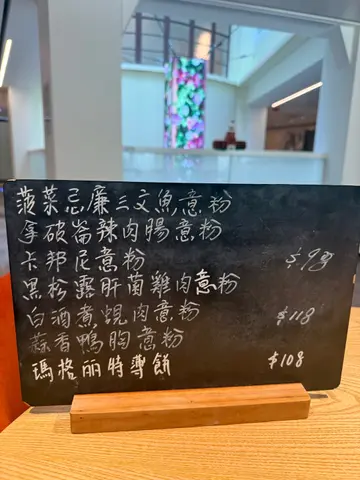 菠菜忌廉三文魚意粉
拿破崙辣肉腸意粉
卡邦尼意粉 $98
黑松露肝菌雞肉意粉
白酒煮蜆肉意粉 $118
蒜香鴨胸意粉
瑪格丽特薄餅 $108